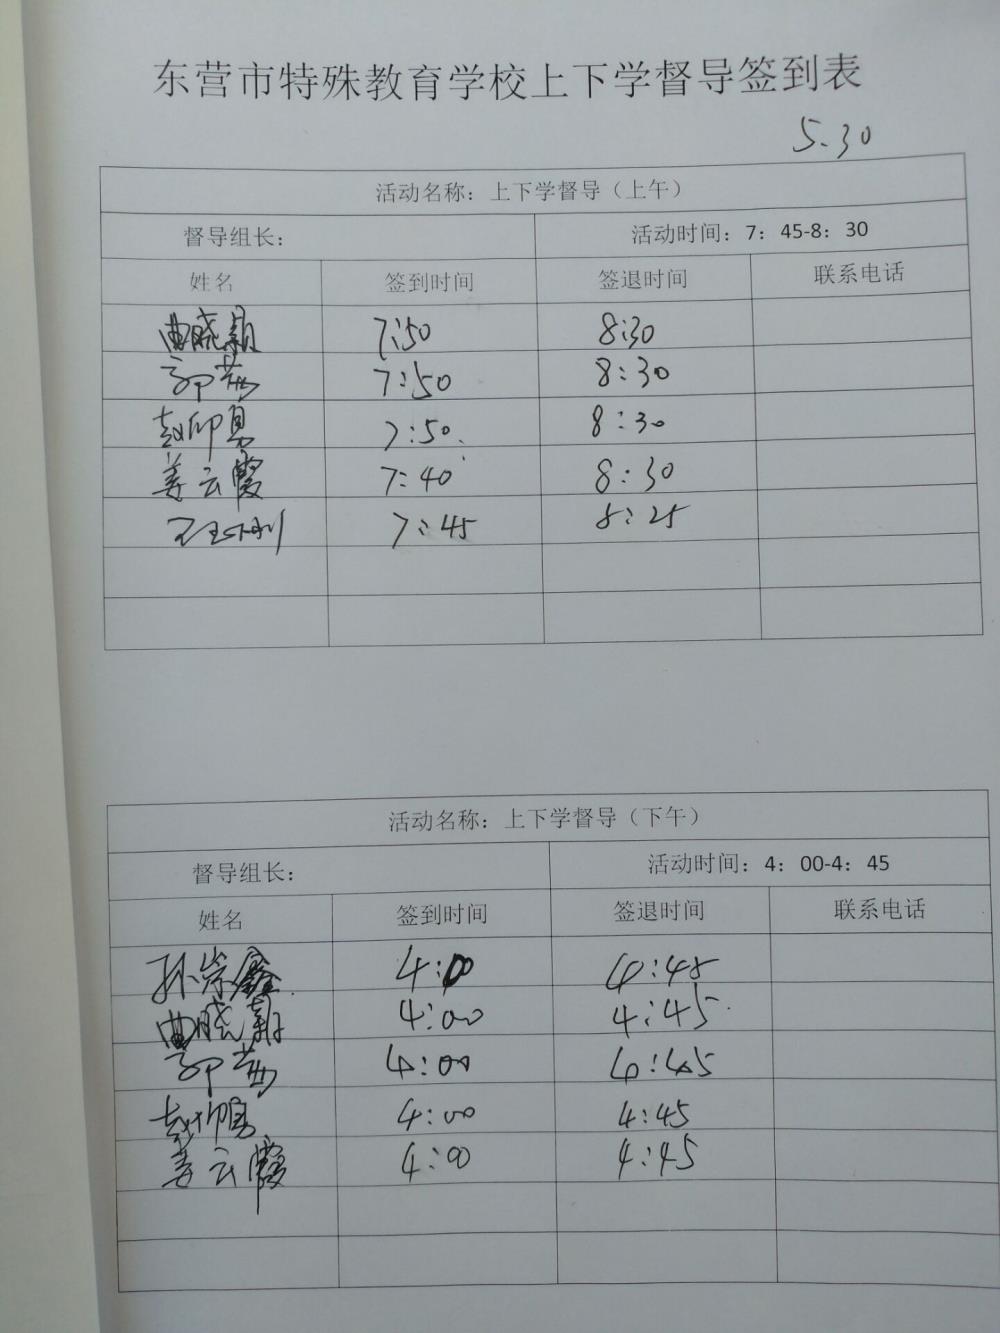 东营市特殊教育学校上下学督导签到表
5.30
活动名称：上下学督导（上午）
督导组长： 活动时间：7：45-8：30
姓名 签到时间 签退时间 联系电话
曲晓颖 7:50 8:30
郭茜 7:50 8:30
7:50 8:30
姜云霞 7:40 8:30
7:45 8:25
活动名称：上下学督导（下午）
督导组长： 活动时间：4：00-4：45
姓名 签到时间 签退时间 联系电话
孙崇鑫 4:00 4:45
曲晓颖 4:00 4:45
郭茜 4:00 4:45
4:00 4:45
姜云霞 4:00 4:45